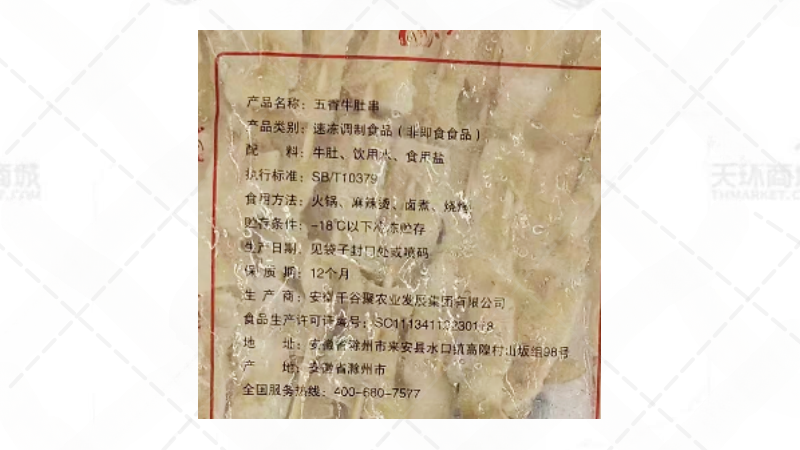 产品名称：五香牛肚串
产品类别：速冻调制食品（非即食食品）
配 料：牛肚、饮用水、食用盐
执行标准：SB/T10379
食用方法：火锅、麻辣烫、卤煮、烧烤
贮存条件：-18℃以下冷冻贮存
生产日期：见袋子封口处或喷码
保 质 期：12个月
生 产 商：安徽千谷聚农业发展集团有限公司
食品生产许可证编号：
地 址：安徽省滁州市来安县水口镇高隍村山坂组98号
产 地：安徽省滁州市
全国服务热线：400-680-7577
天环商城
THMARKET.CN